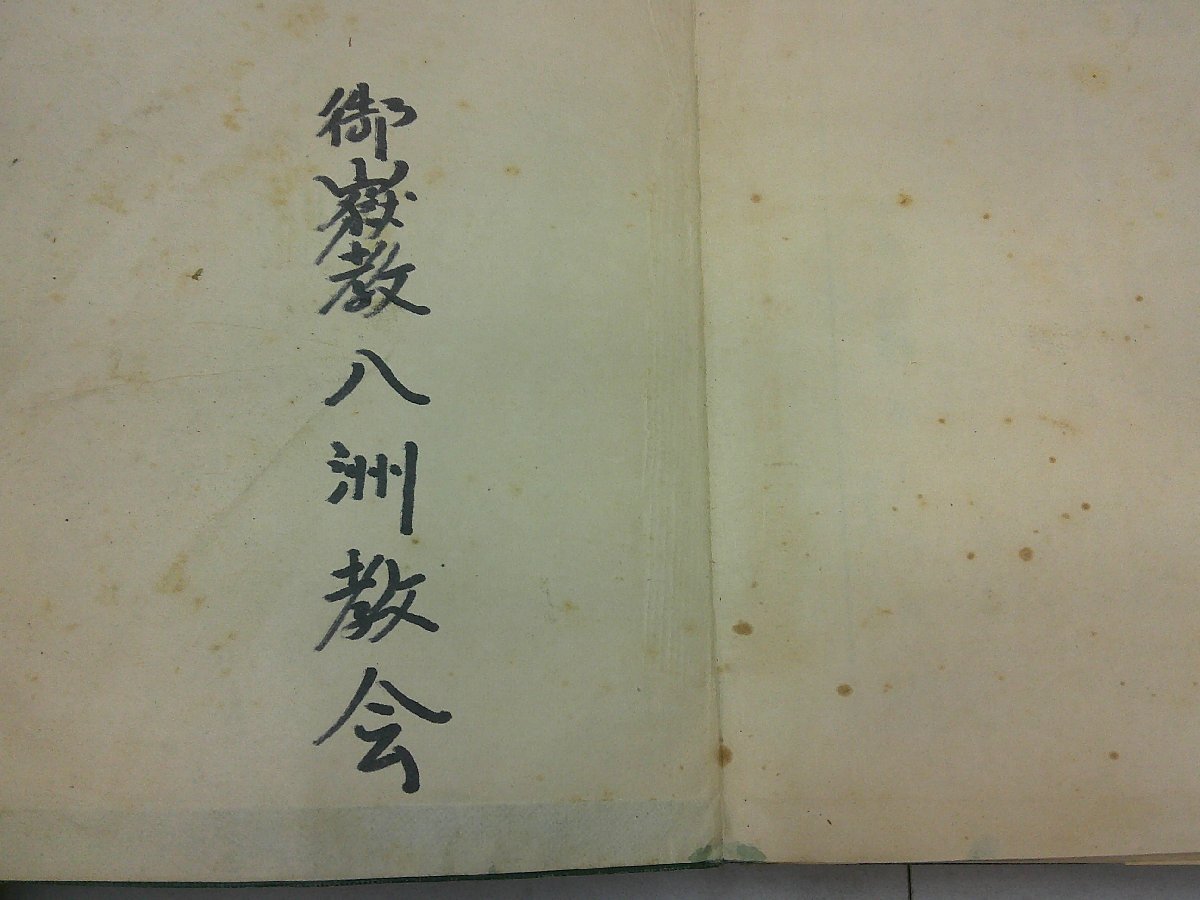 御嶽教八洲教会